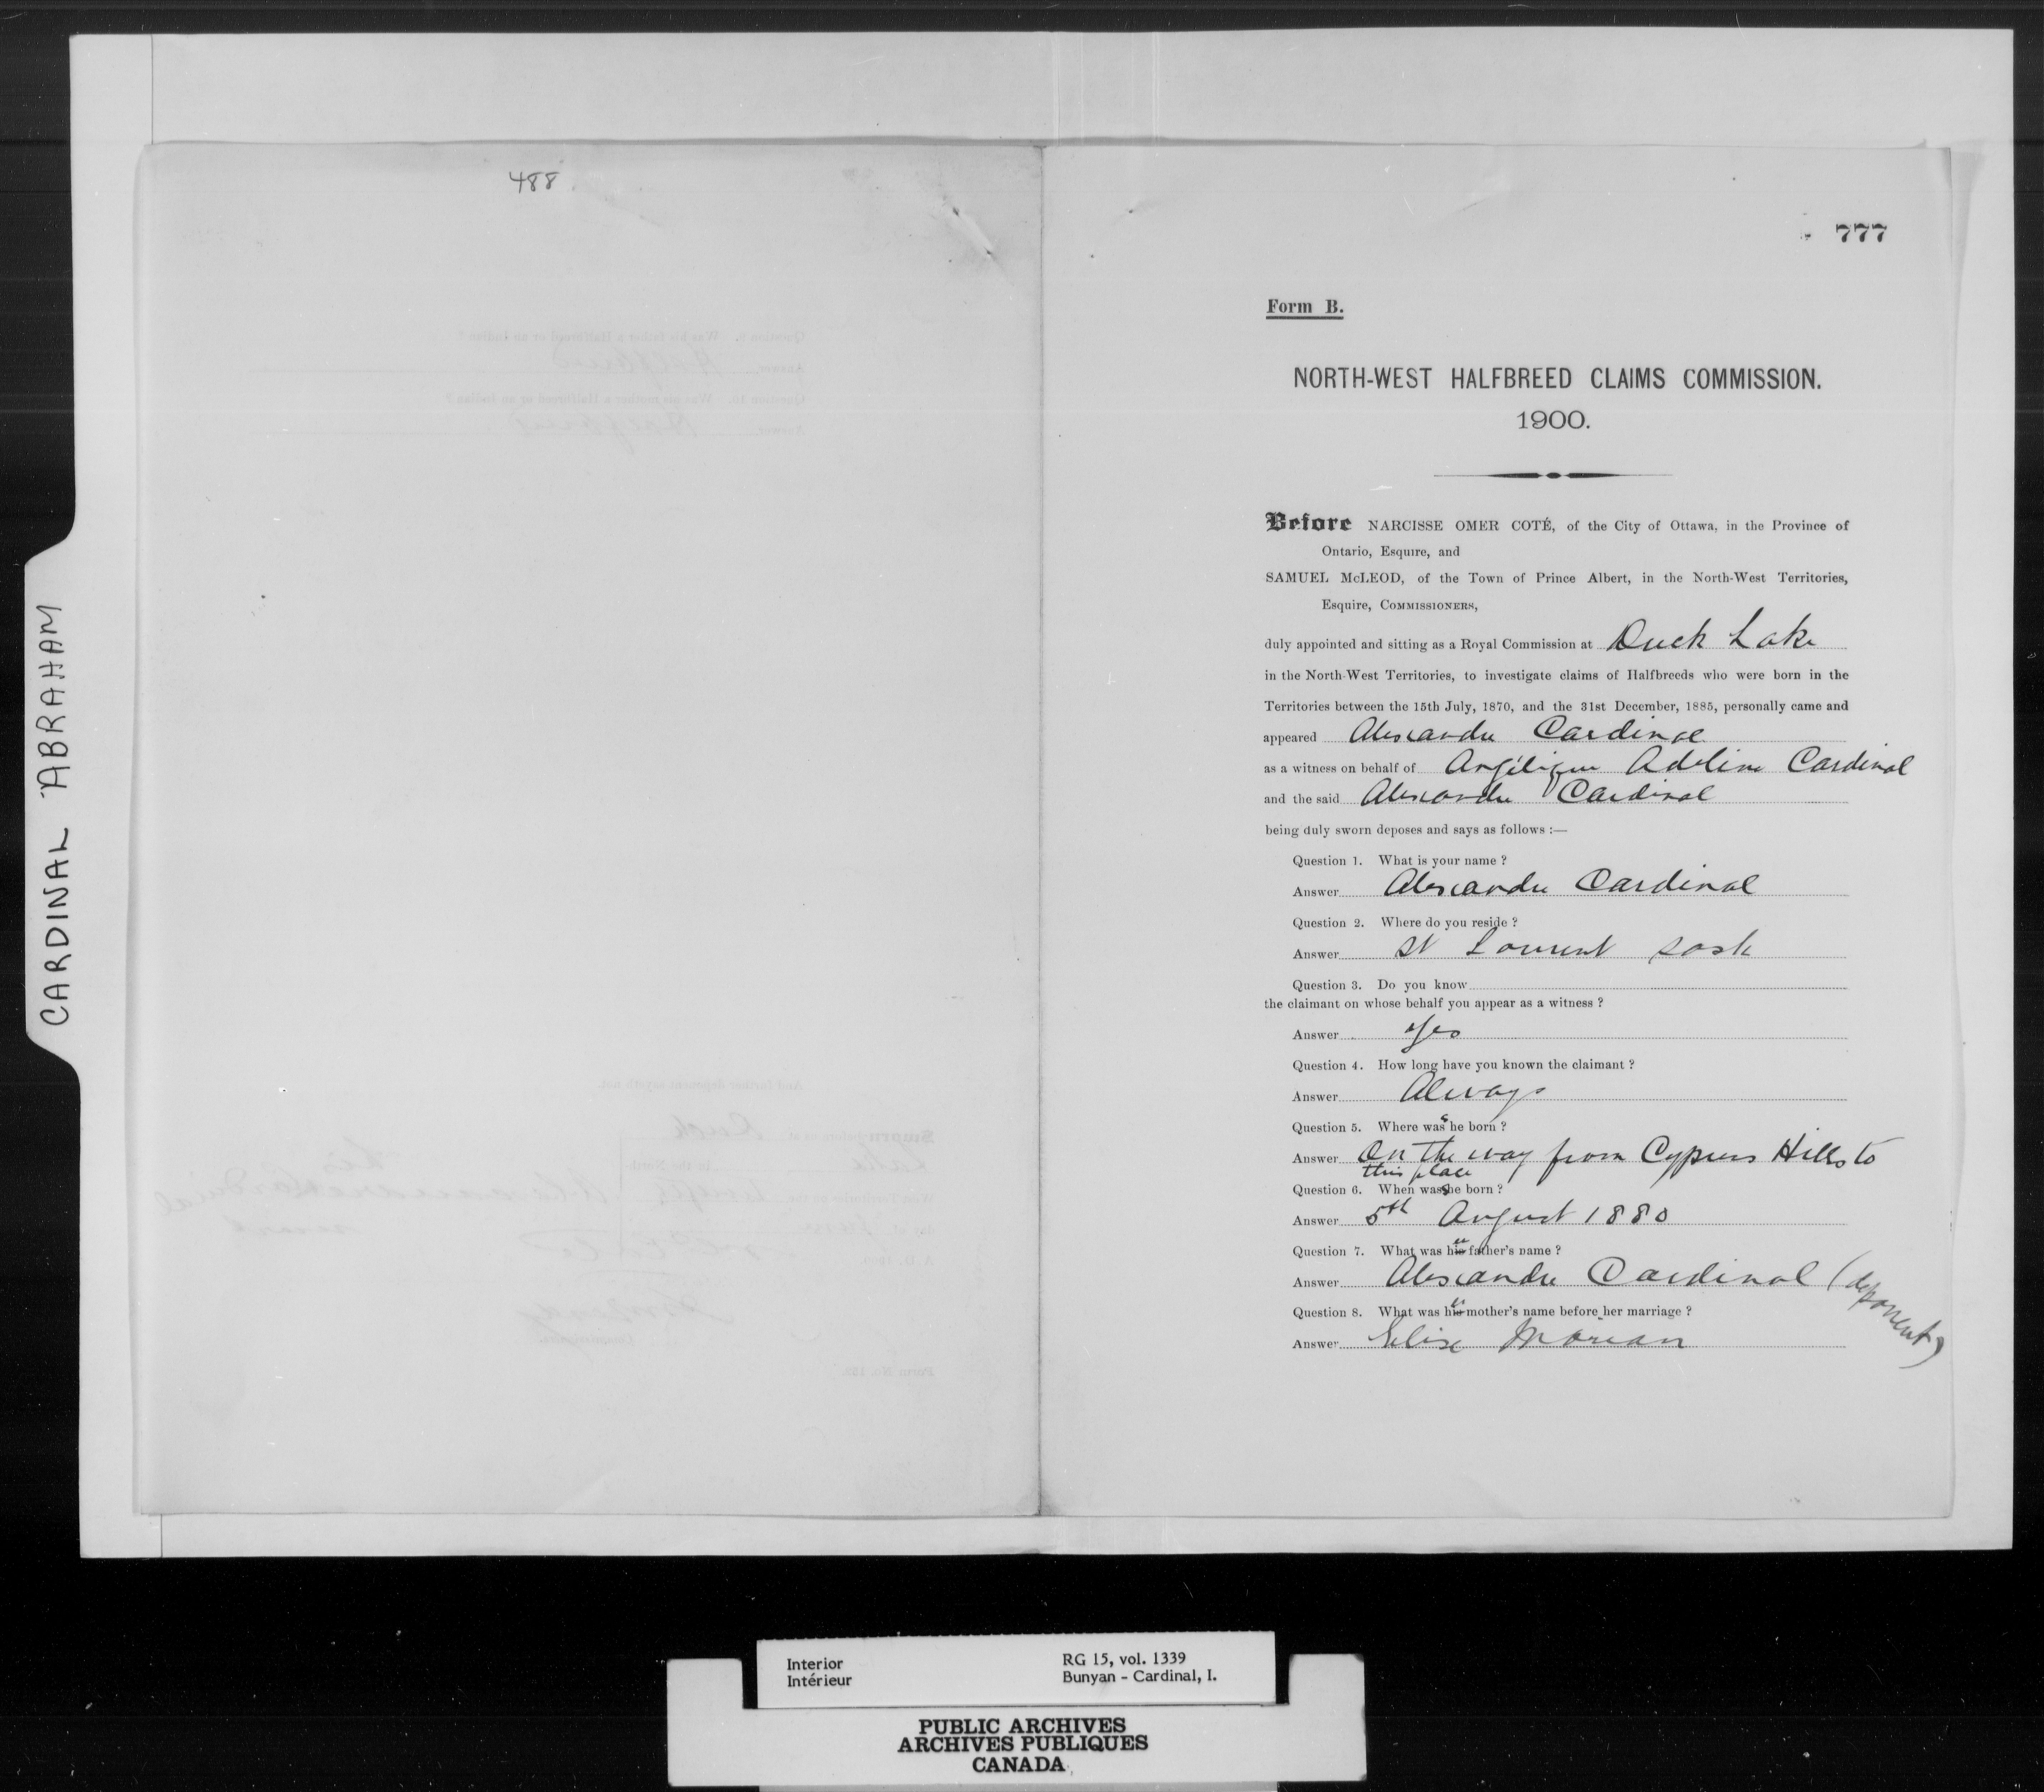 488
777
Form B.
NORTH-WEST HALFBREED CLAIMS COMMISSION.
1900.
Before NARCISSE OMER COTÉ, of the City of Ottawa, in the Province of
Ontario, Esquire, and
SAMUEL McLEOD, of the Town of Prince Albert, in the North-West Territories,
Esquire, COMMISSIONERS,
duly appointed and sitting as a Royal Commission at Duck Lake
in the North-West Territories, to investigate claims of Halfbreeds who were born in the
Territories between the 15th July, 1870, and the 31st December, 1885, personally came and
appeared Alexandre Cardinal
as a witness on behalf of Angélique Adeline Cardinal
and the said Alexandre Cardinal
being duly sworn deposes and says as follows :—
Question 1. What is your name ?
Answer Alexandre Cardinal
Question 2. Where do you reside ?
Answer St Laurent Sask
Question 3. Do you know
the claimant on whose behalf you appear as a witness ?
Answer Yes
Question 4. How long have you known the claimant ?
Answer Always
Question 5. Where was she born ?
Answer On the way from Cypress Hills to
this place
Question 6. When was she born ?
Answer 5th August 1880
Question 7. What was her father's name ?
Answer Alexandre Cardinal (deponent)
Question 8. What was her mother's name before her marriage ?
Answer Elise Morian
CARDINAL ABRAHAM
Interior
Intérieur
RG 15, vol. 1339
Bunyan - Cardinal, I.
PUBLIC ARCHIVES
ARCHIVES PUBLIQUES
CANADA